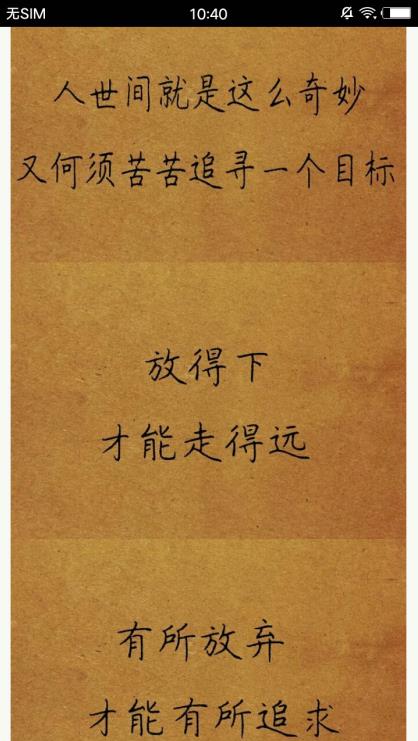 无SIM 10:40
人世间就是这么奇妙
又何须苦苦追寻一个目标
放得下
才能走得远
有所放弃
才能有所追求